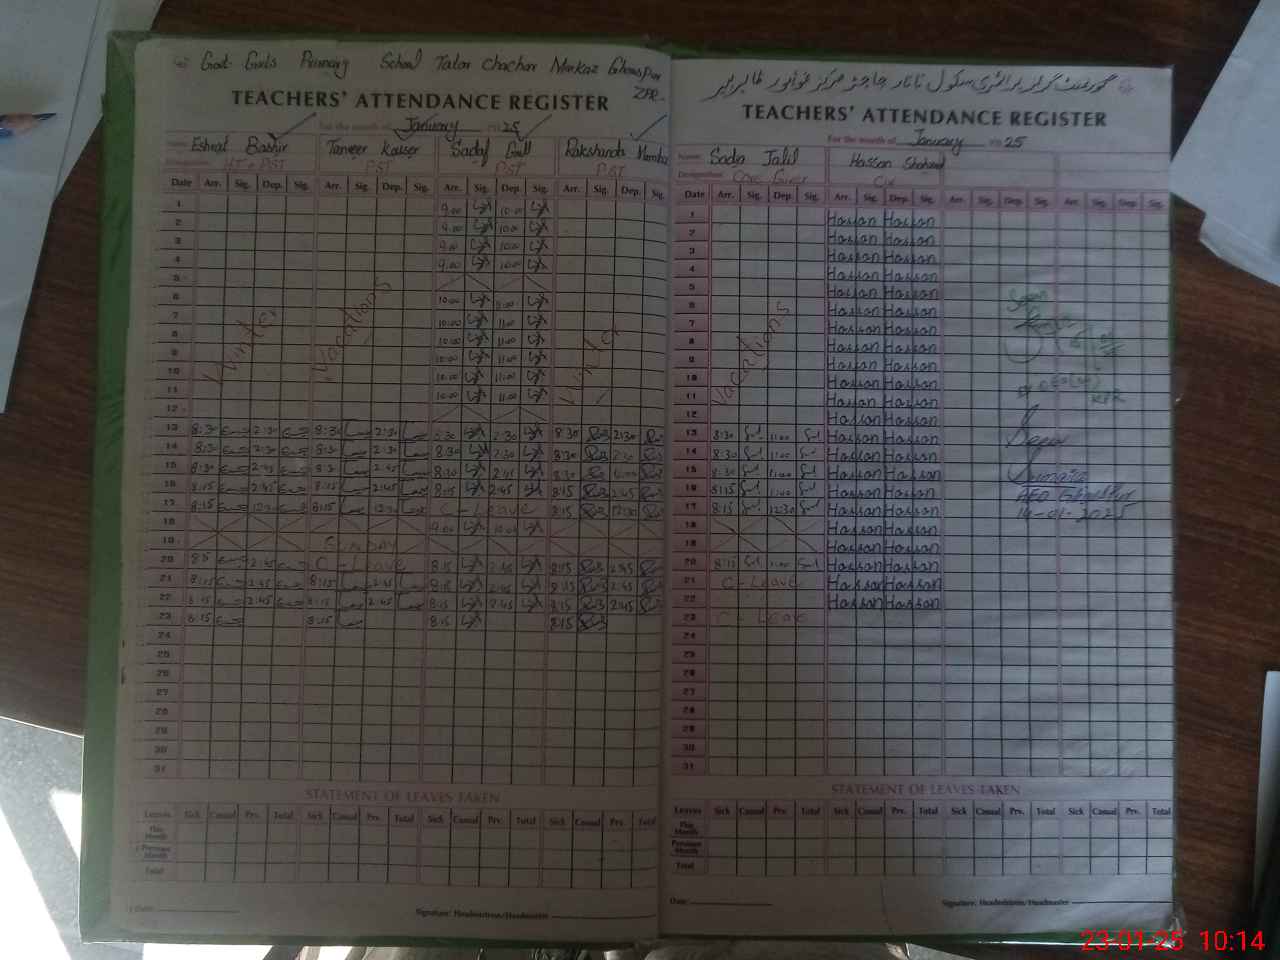 Govt. Girls Primary School Tatar Chachar Markaz Ghouspur
ZPR.
TEACHERS' ATTENDANCE REGISTER
For the month of January 2025
Eshrat Bashir Tanveer Kaiser Sadaf Gull Rakshanda Mumtaz
Designation HT + PST PST PST PST
Date Arr. Sig. Dep. Sig. Arr. Sig. Dep. Sig. Arr. Sig. Dep. Sig. Arr. Sig. Dep. Sig.
1 9:00 10:00
2 9:00 10:00
3 9:00 10:00
4 9:00 10:00
5
6 10:00 11:00
7 10:00 11:00
8 10:00 11:00
9 10:00 11:00
10 10:00 11:00
11 10:00 11:00
Winter Vacations Winter
12
13 8:30 2:30 8:30 2:30 8:30 2:30 8:30 2:30
14 8:30 2:30 8:30 2:30 8:30 2:30 8:30
15 8:30 2:45 8:30 2:45 8:30 2:45 8:30
16 8:15 2:45 8:15 2:45 8:15 2:45 8:15 2:45
17 8:15 12:30 8:15 12:30 C - Leave 8:15 12:30
18 9:00 10:00
19 SUNDAY
20 8:15 2:45 C - Leave 8:15 2:45 8:15 2:45
21 8:15 2:45 8:15 2:45 8:15 2:45 8:15 2:45
22 8:15 2:45 8:15 2:45 8:15 2:45 8:15 2:45
23 8:15 8:15 8:15 8:15
24
25
26
27
28
29
30
31
STATEMENT OF LEAVES TAKEN
Leaves Sick Casual Prv. Total Sick Casual Prv. Total Sick Casual Prv. Total Sick Casual Prv. Total
This Month
Previous Month
Total
Date:
Signature: Headmistress/Headmaster
گورنمنٹ گرلز پرائمری سکول تاتار چاچڑ مرکز غوثپور ظاہر پیر
TEACHERS' ATTENDANCE REGISTER
For the month of January 2025
Name: Sadia Jalil Hassan Shahzad
Designation Care Giver C iv
Date Arr. Sig. Dep. Sig. Arr. Sig. Dep. Sig. Arr. Sig. Dep. Sig. Arr. Sig. Dep. Sig.
1 Hassan Hassan
2 Hassan Hassan
3 Hassan Hassan
4 Hassan Hassan
5 Hassan Hassan
6 Hassan Hassan
7 Hassan Hassan
8 Hassan Hassan
9 Hassan Hassan
10 Hassan Hassan
11 Hassan Hassan
Vacations
12 Hassan Hassan
13 8:30 11:00 Hassan Hassan
14 8:30 11:00 Hassan Hassan
15 8:30 11:00 Hassan Hassan
16 8:15 11:40 Hassan Hassan
17 8:15 12:30 Hassan Hassan
18 Hassan Hassan
19 Hassan Hassan
20 8:15 Hassan Hassan
21 C - Leave Hassan Hassan
22 Hassan Hassan
23 C - Leave
24
25
26
27
28
29
30
31
Seen
Seen
Sumaira
AEO Ghouspur
14-01-2025
STATEMENT OF LEAVES TAKEN
Leaves Sick Casual Prv. Total Sick Casual Prv. Total Sick Casual Prv. Total Sick Casual Prv. Total
This Month
Previous Month
Total
Date:
Signature: Headmistress/Headmaster
23-01-25 10:14